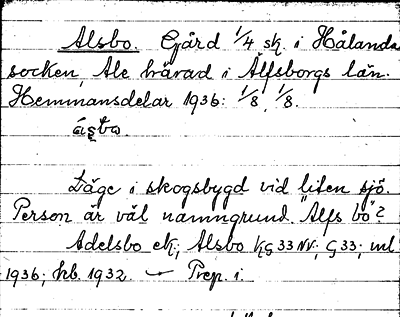 Alsbo. Gård 1/4 sk. i Hålanda
socken, Ale härad i Älfsborgs län.
Hemmansdelar 1936: 1/8, 1/8.
Läge i skogsbygd vid liten sjö.
Person är väl namngrund. "Alfs bo"?
Adelsbo ek; Alsbo KG 33 NV; G 33; ml
1936; hb. 1932. — Prep. i.